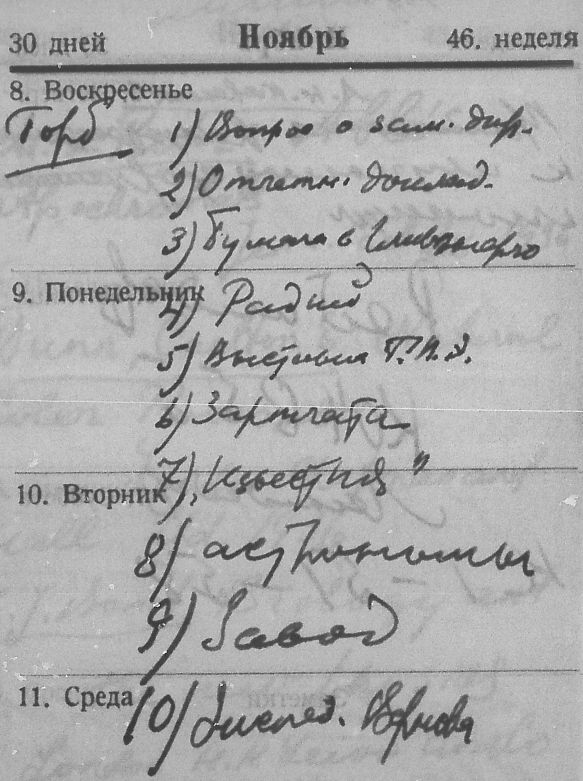 30 дней Ноябрь 46. неделя
8. Воскресенье
Горб
1) Вопрос о зам. дир.
2) Отчетн. доклад.
3) Бумага в Главэнерго
9. Понедельник
4) Радио
5) Выставка
6) Зарплата
7) „Известия"
10. Вторник
8) астрономы
9) Завод
11. Среда
10) Экспед.